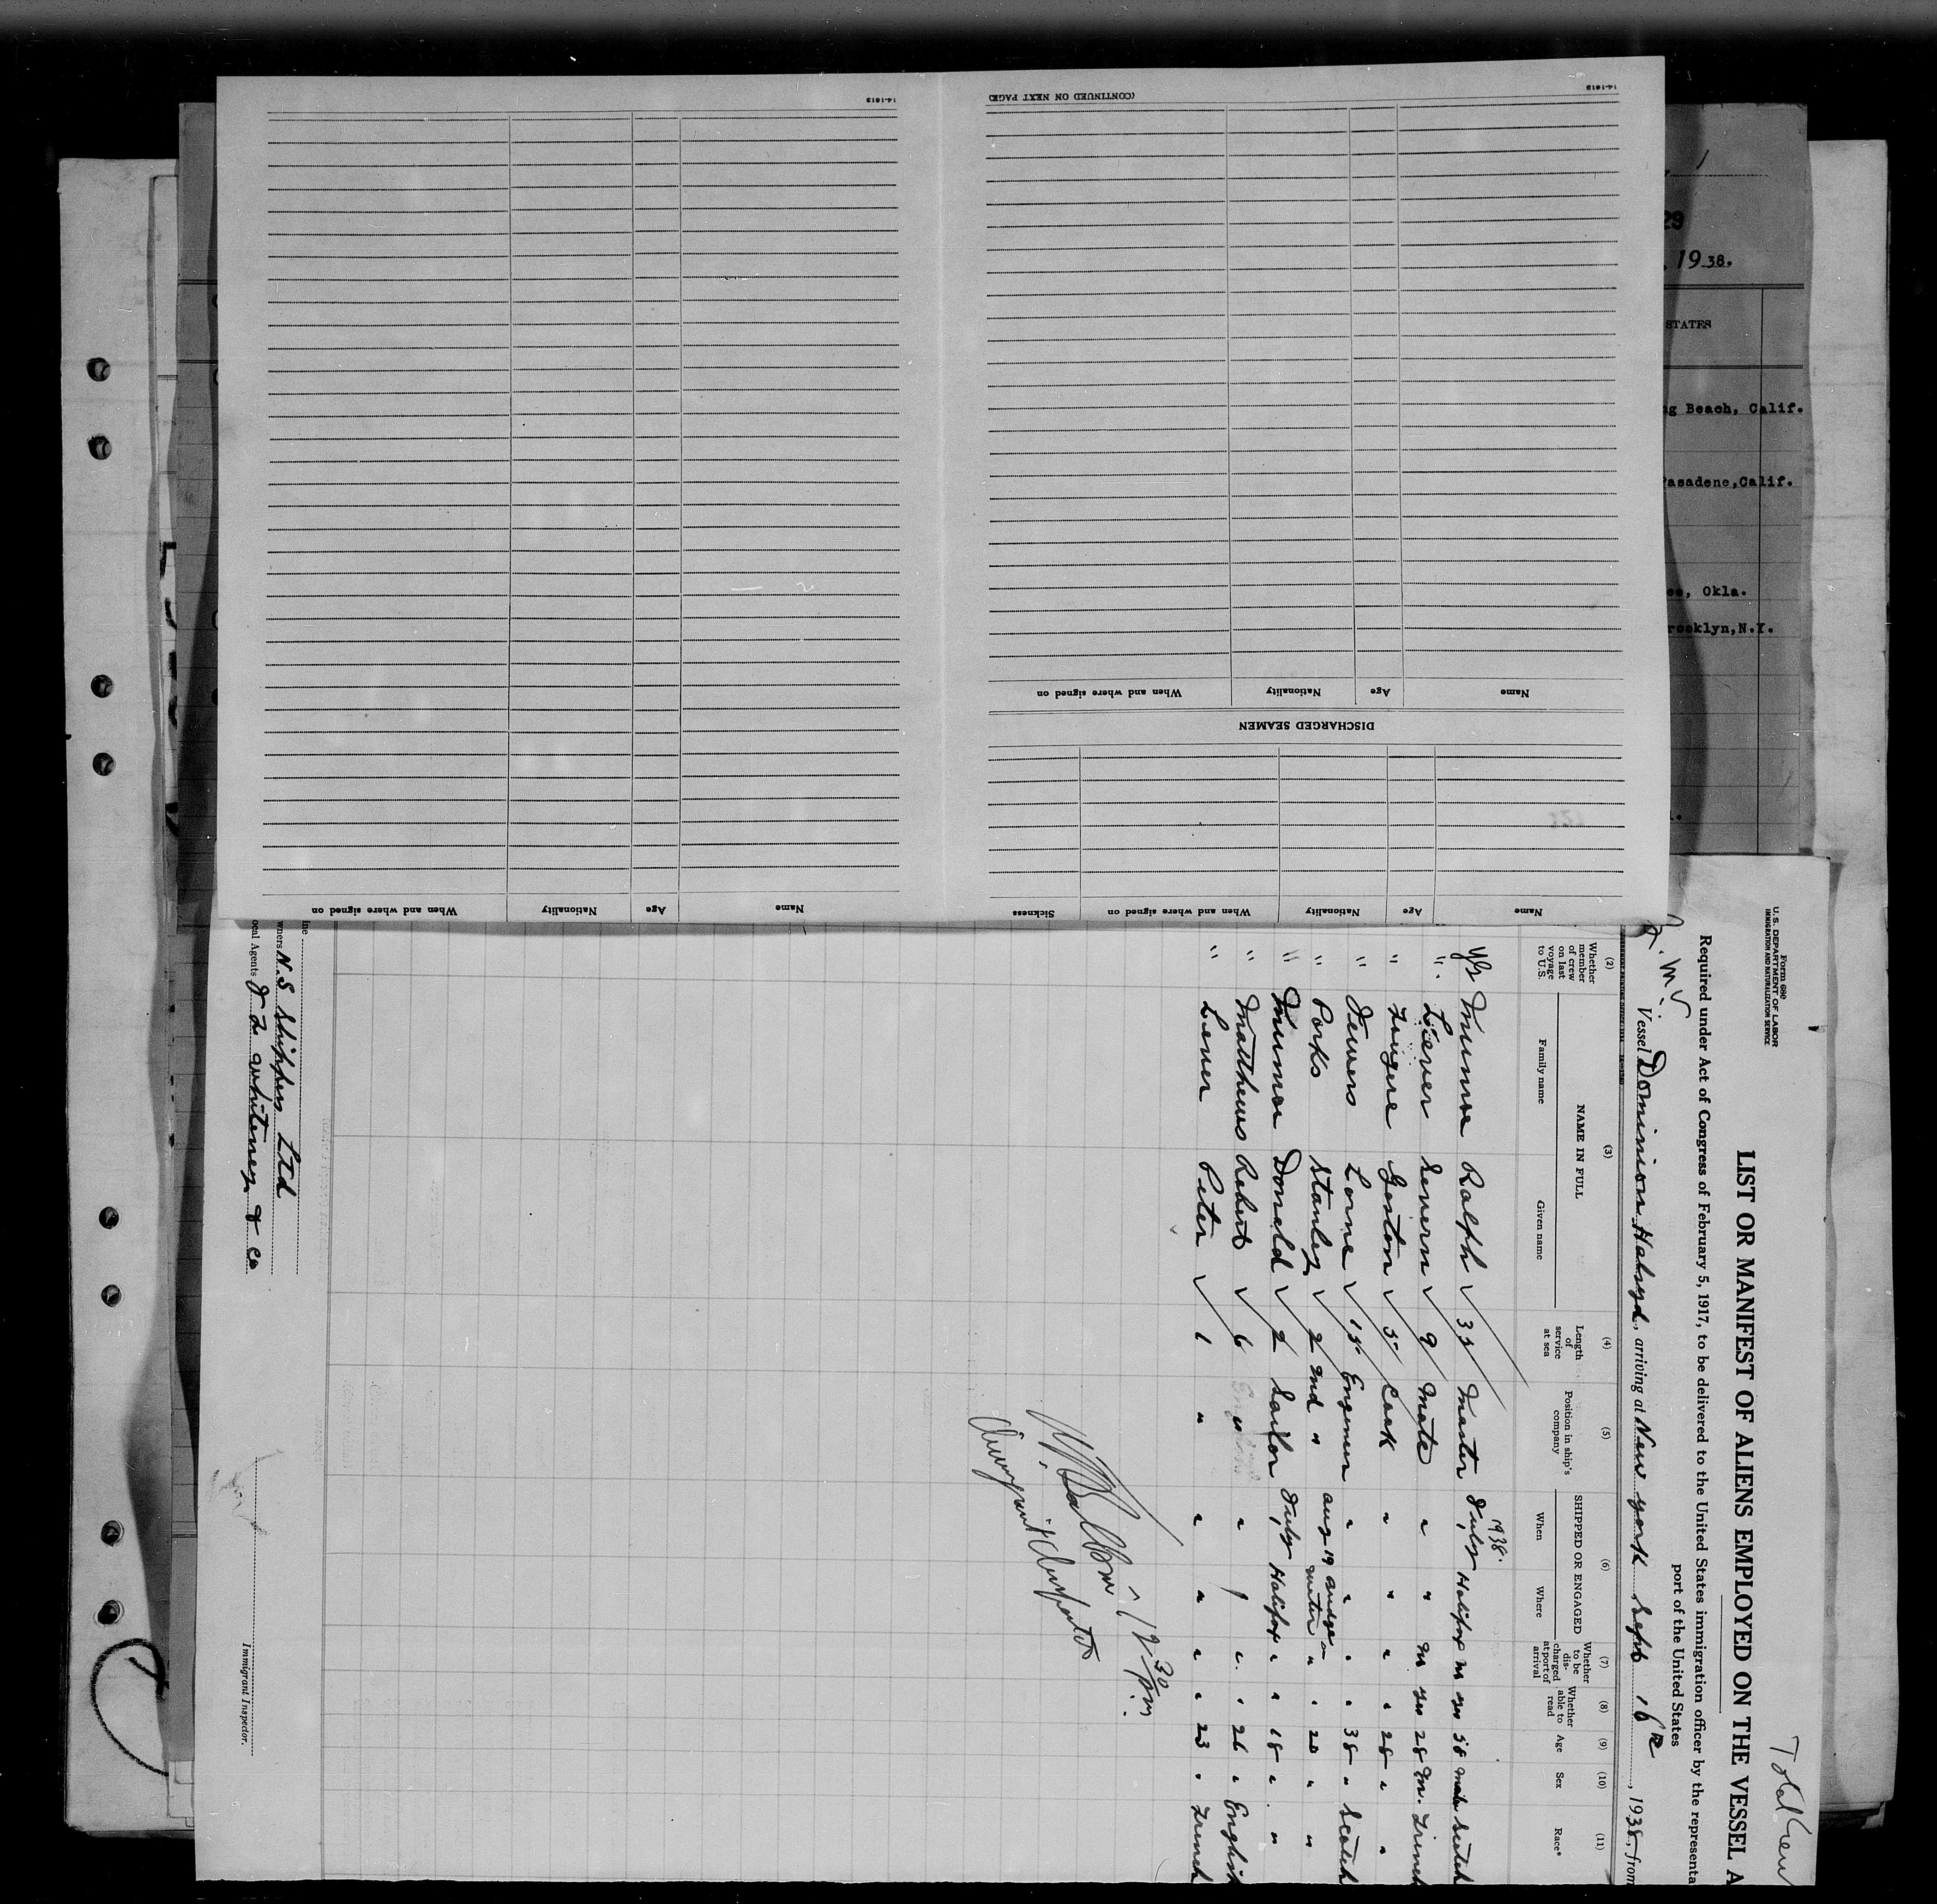 14-1613
(CONTINUED ON NEXT PAGE)
14-1613
Name
Age
Nationality
When and where signed on
DISCHARGED SEAMEN
Name
Age
Nationality
When and where signed on
Sickness
Name
Age
Nationality
When and where signed on
29
, 1938.
STATES
ng Beach, Calif.
Pasadene, Calif.
ee, Okla.
rooklyn, N.Y.
Total Crew
Form 680
U. S. DEPARTMENT OF LABOR
IMMIGRATION AND NATURALIZATION SERVICE
LIST OR MANIFEST OF ALIENS EMPLOYED ON THE VESSEL A
Required under Act of Congress of February 5, 1917, to be delivered to the United States immigration officer by the representa
port of the United States
Vessel Dominion Halsyd, arriving at New York Sept 16th, 1938, from
(2) (3) (4) (5) (6) (7) (8) (9) (10) (11)
Whether member of crew on last voyage to U.S.
NAME IN FULL
Family name Given name
Length of service at sea
Position in ship's company
SHIPPED OR ENGAGED
When Where
Whether to be discharged at port of arrival
Whether able to read
Age
Sex
Race*
1938.
yes Munroe Ralph ✓ 35 Master July Halifax no yes 58 male Scotch
" Severn ✓ 9 Mate " " no yes 28 m. French
" Fougere Gaston ✓ 5 Cook " " " " 28 " "
" Lorne ✓ 15 Engineer " " " " 38 " Scotch
" Parks Stanley ✓ 2 2nd " Aug 19 " " 20 " "
" Donald ✓ 2 Sailor July Halifax " " 18 " "
" Matthews Robert ✓ 6 " " " " 26 " English
" Peter ✓ 1 " " " " " 23 " French
12 30 pm.
Immigrant Inspector
ine
wners N.S Shippers Ltd
ocal Agents J F Whitney & Co
Immigrant Inspector.